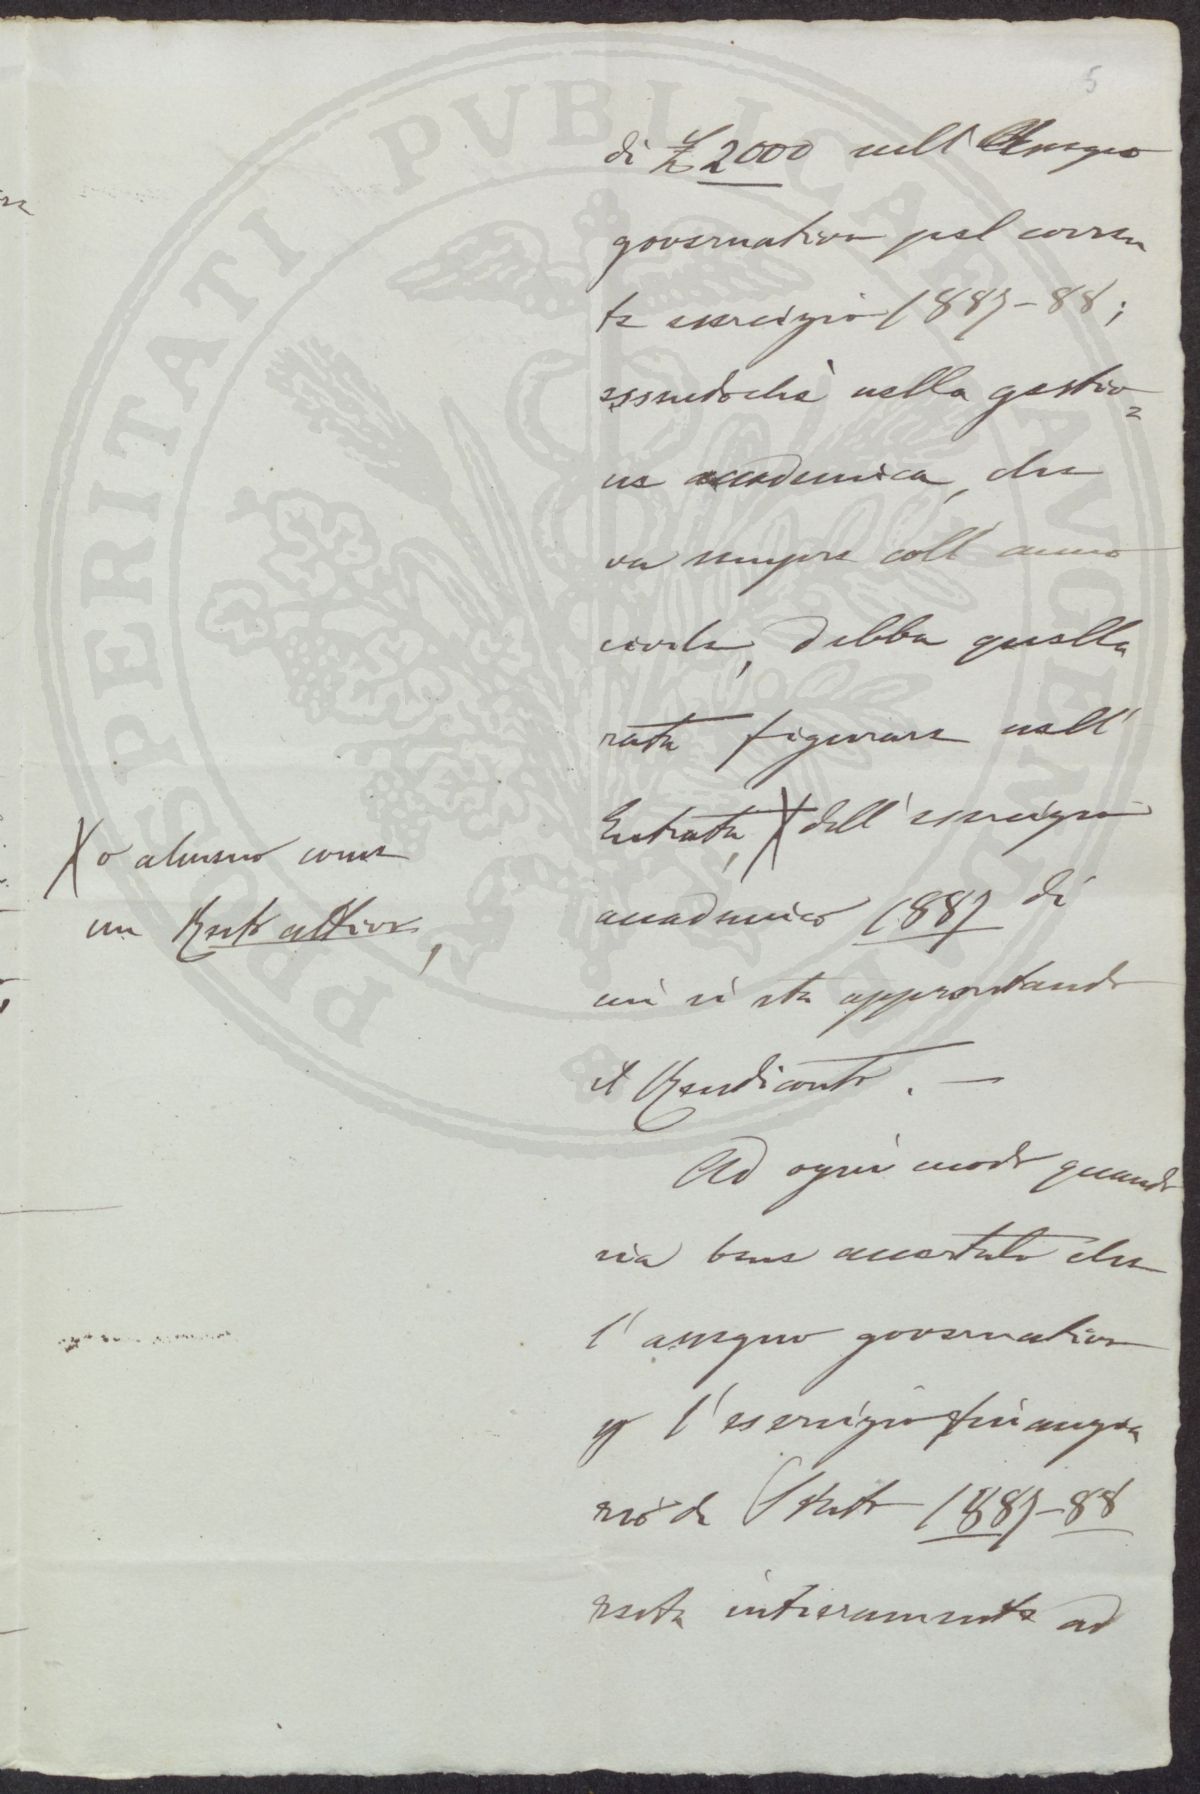 5
di £ 2000 nell'Assegno
governativo pel corren
te esercizio 1887-88;
essendochè nella gestio=
ne accademica, che
va sempre coll'anno
civile, debba quella
rata figurare nell'
Entrata, X dell'esercizio
accademico 1887 di
cui si sta apprestando
il Rendiconto. —
Ad ogni modo quando
sia bene accertato che
l'assegno governativo
p l'esercizio finanzia
rio de Stato 1887-88
resta intieramente ad
X o almeno come
un Resto attivo,
PROSPERITATI PVBLICAE AVGENDAE